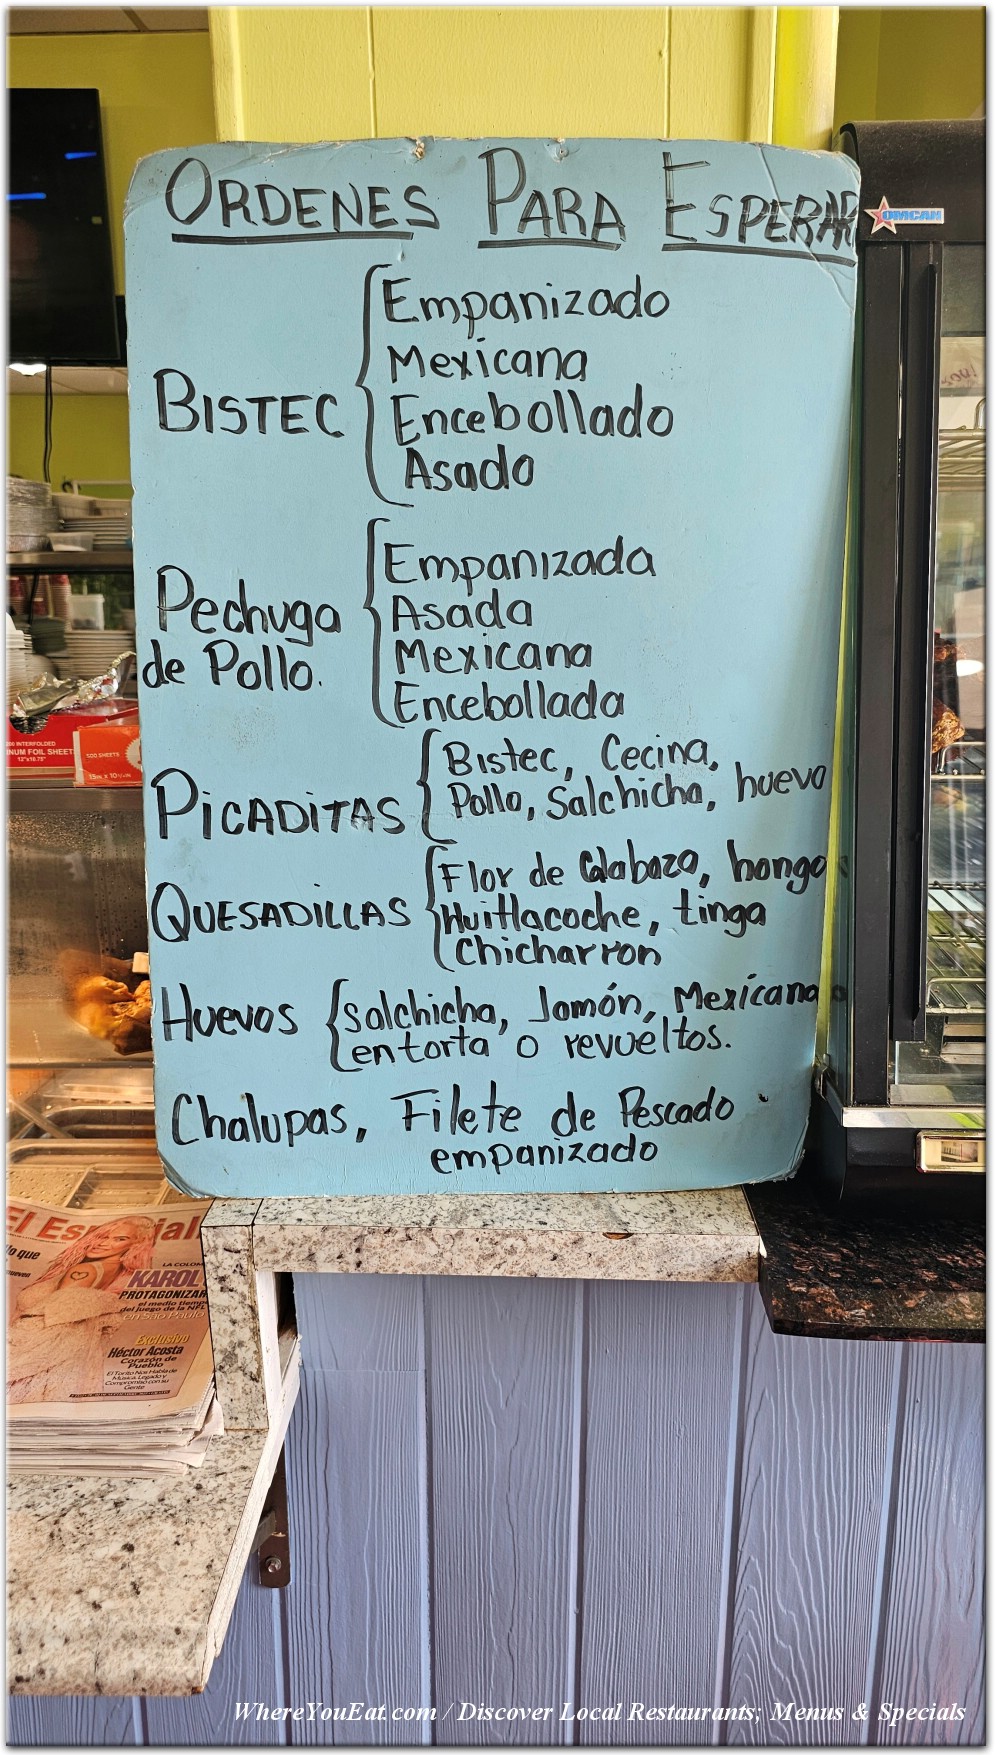 ORDENES PARA ESPERAR
BISTEC
Empanizado
Mexicana
Encebollado
Asado
Pechuga
de Pollo.
Empanizada
Asada
Mexicana
Encebollada
PICADITAS
Bistec, Cecina,
Pollo, Salchicha, huevo
QUESADILLAS
Flor de Calabaza, hongos
Huitlacoche, tinga
Chicharron
HUEVOS
Salchicha, Jamón, Mexicano
entorta o revueltos.
Chalupas, Filete de Pescado
empanizado
OMCAN
INTERFOLDED
NUM FOIL SHEET
12"x10.75"
500 SHEETS
El Especial
lo que
LA COLOM
KAROL
PROTAGONIZAR
el medio tiemp
del juego de la NFL
en São Paulo
Exclusivo
Héctor Acosta
Corazón de
Pueblo
El Torito Nos Habla de
Música, Legado y
Compromiso con su
Gente
WhereYouEat.com / Discover Local Restaurants; Menus & Specials